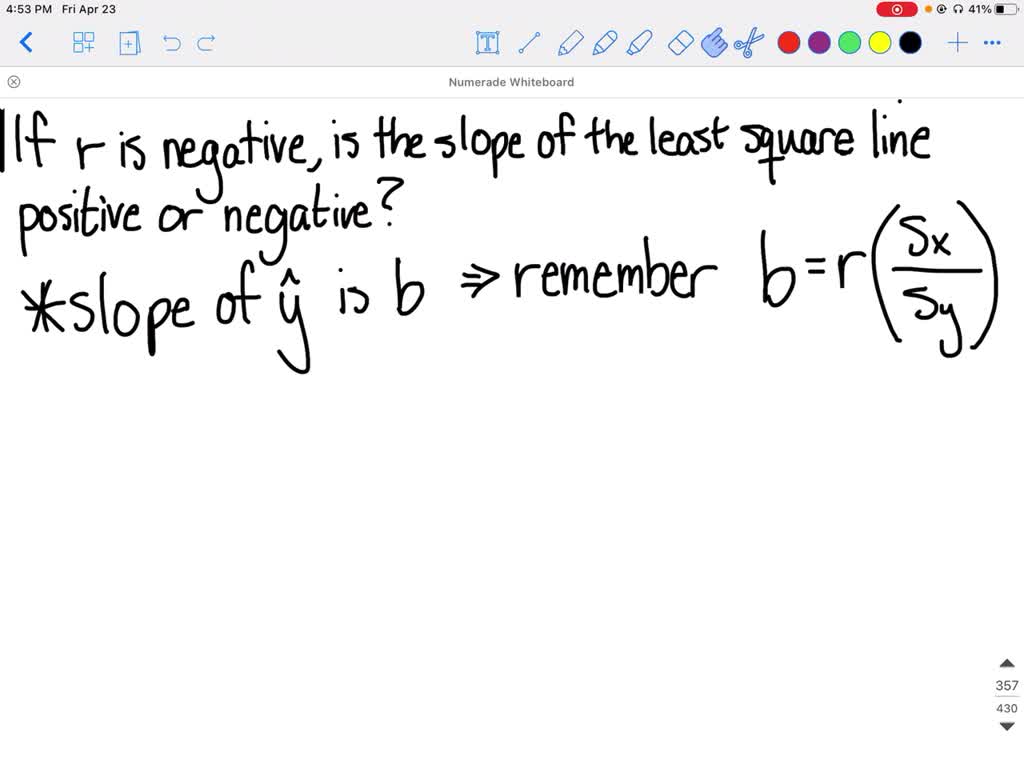 4:53 PM Fri Apr 23 41%
Numerade Whiteboard
If r is negative, is the slope of the least square line
positive or negative?
*slope of ŷ is b ⇒ remember b = r(Sx/Sy)
357
430